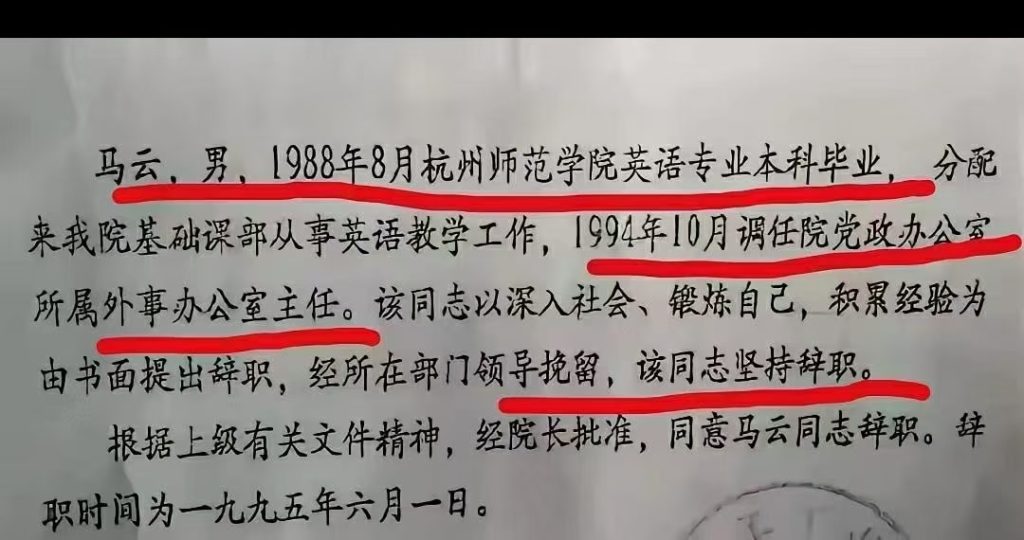 马云，男，1988年8月杭州师范学院英语专业本科毕业，分配
来我院基础课部从事英语教学工作，1994年10月调任院党政办公室
所属外事办公室主任。该同志以深入社会、锻炼自己，积累经验为
由书面提出辞职，经所在部门领导挽留，该同志坚持辞职。
根据上级有关文件精神，经院长批准，同意马云同志辞职。辞
职时间为一九九五年六月一日。